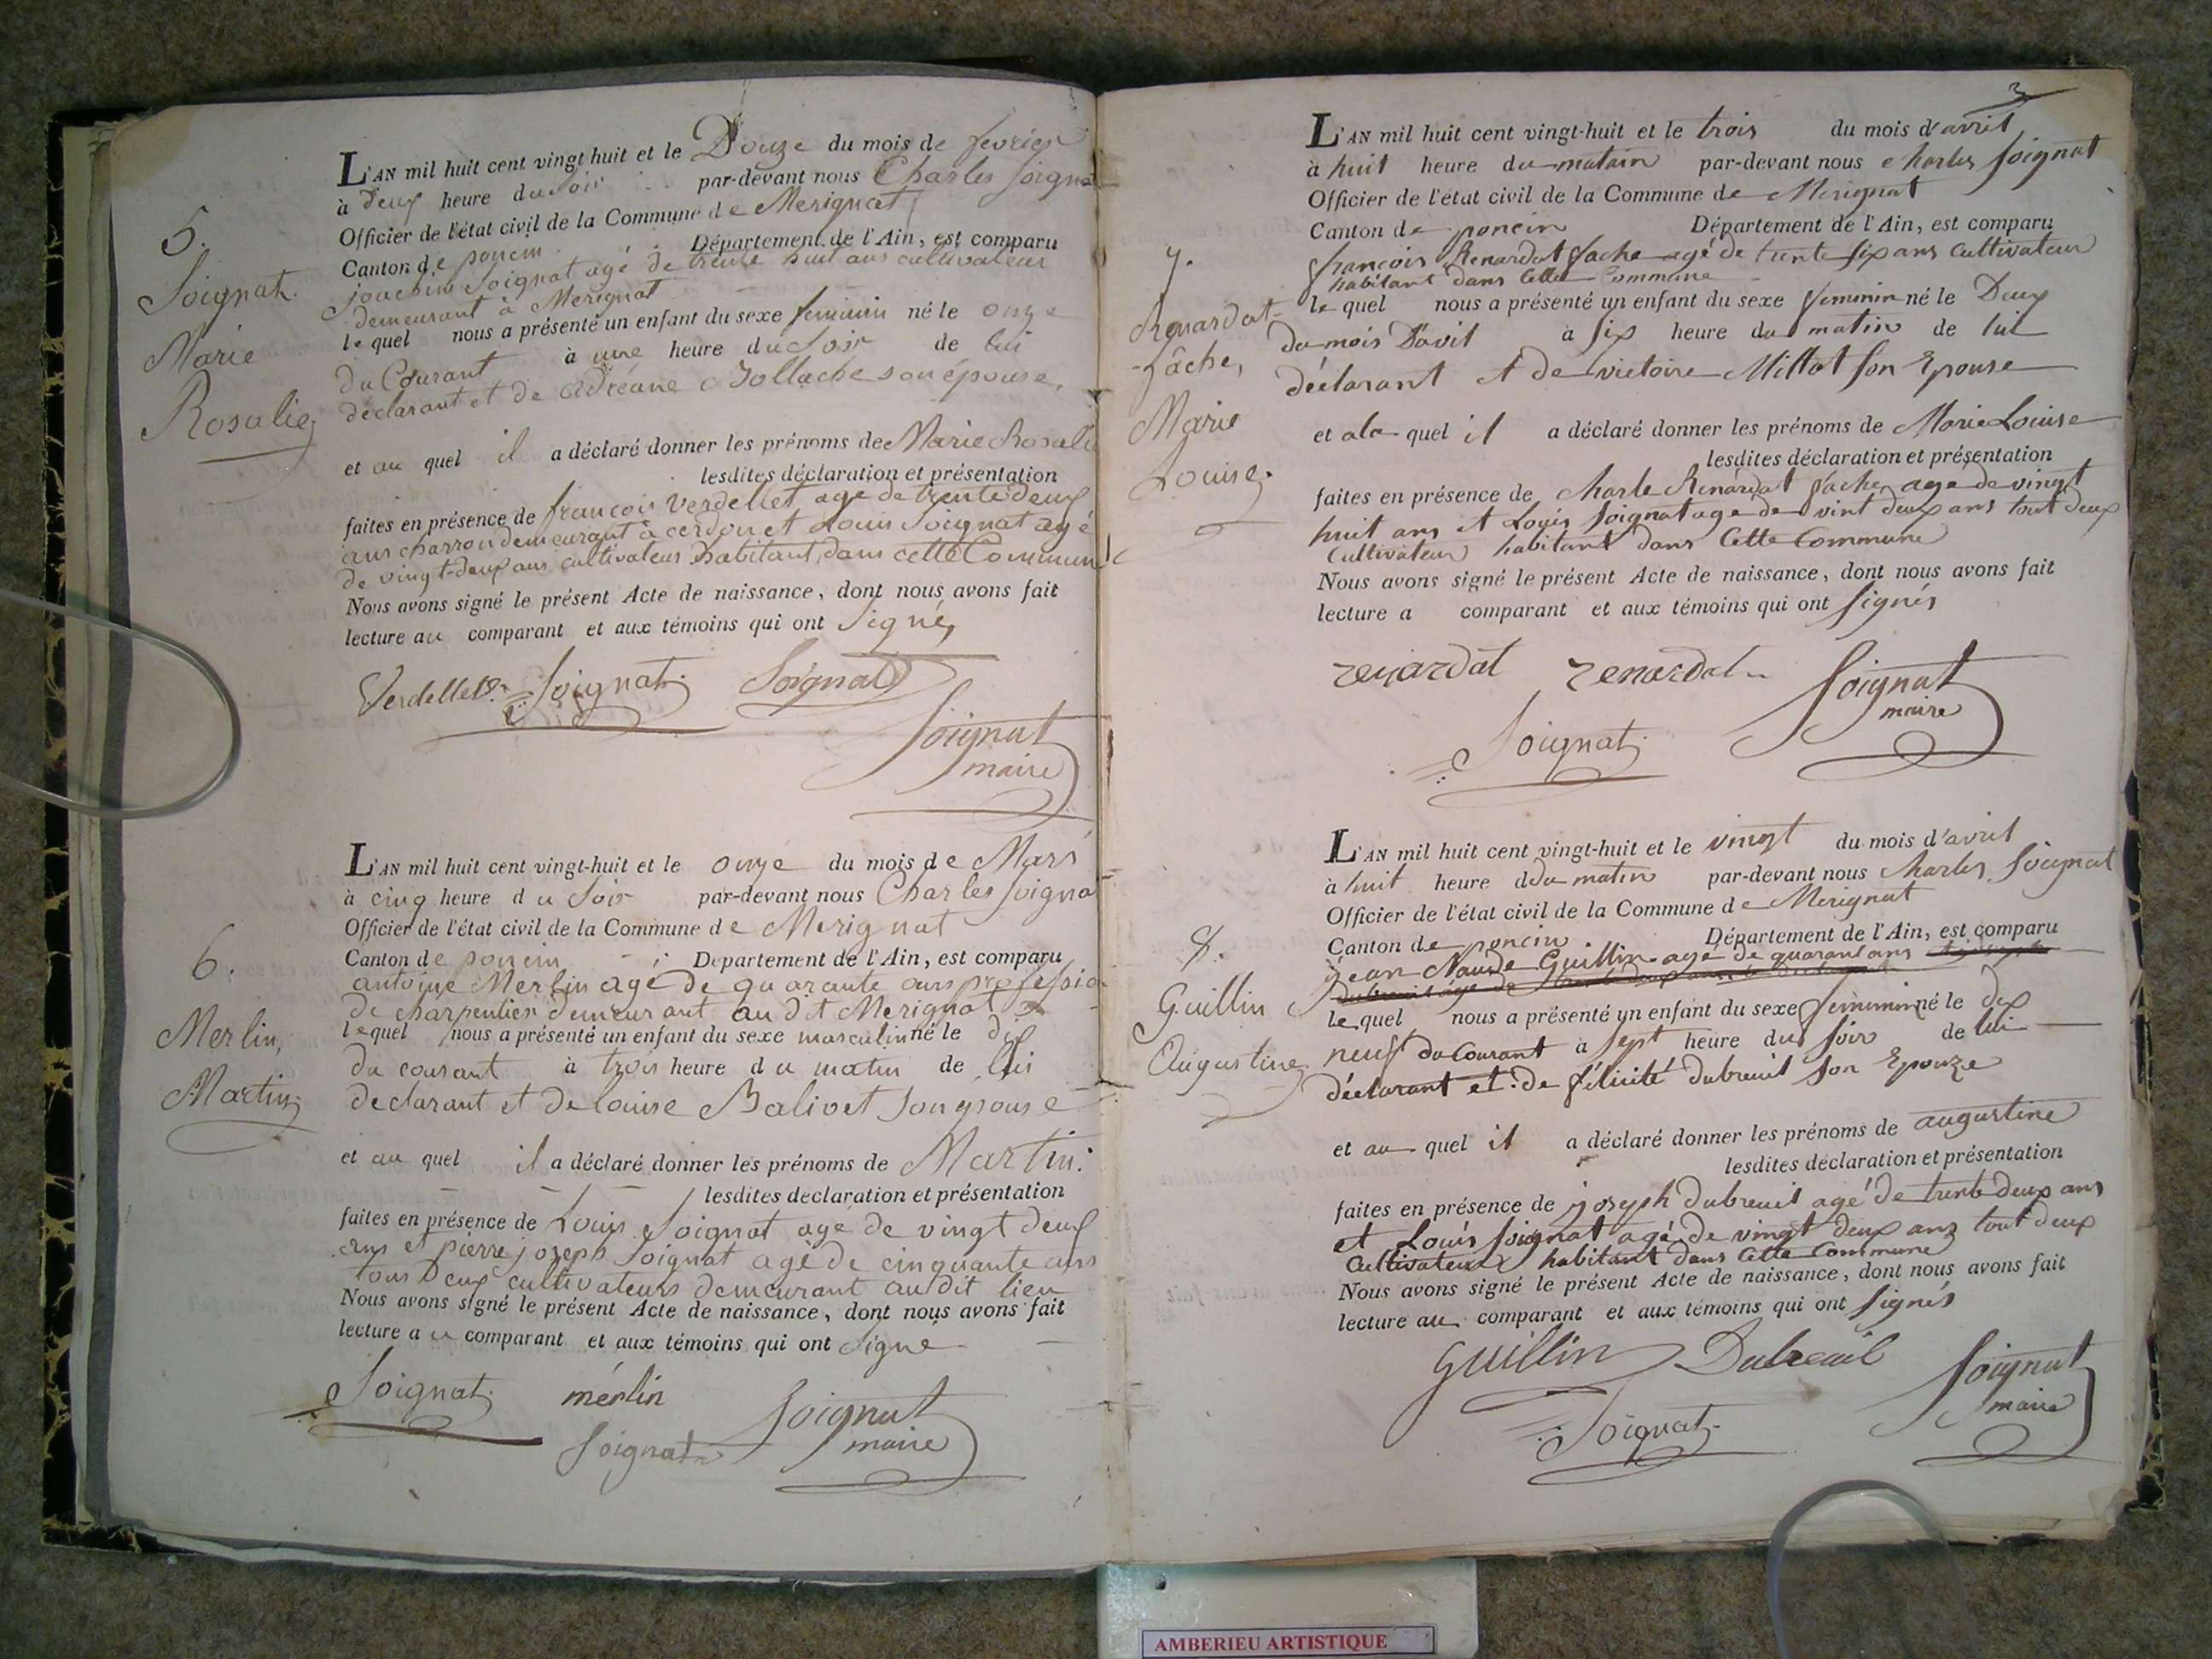 5.
Soignat
Marie
Rosalie
L'AN mil huit cent vingt huit et le Douze du mois de fevrier
à deux heure du soir par-devant nous Charles Soignat
Officier de l'état civil de la Commune de Merignat
Canton de poncin Département de l'Ain, est comparu
joachim Soignat agé de trente huit ans cultivateur
demeurant à Merignat
le quel nous a présenté un enfant du sexe feminin né le onze
du Courant à une heure du soir de lui
declarant et de son épouse,
et au quel il a déclaré donner les prénoms de Marie Rosalie
lesdites déclaration et présentation
faites en présence de françois Verdellet agé de trente deux
ans charron demeurant à cerdon et Louis Soignat agé
de vingt-deux ans cultivateur habitant dans cette Commune
Nous avons signé le présent Acte de naissance, dont nous avons fait
lecture au comparant et aux témoins qui ont Signé,
Verdellet Soignat Soignat
Soignat
maire
6.
Merlin,
Martin
L'AN mil huit cent vingt-huit et le onze du mois de Mars
à cinq heure du Soir par-devant nous Charles Soignat
Officier de l'état civil de la Commune de Merignat
Canton de poncin Departement de l'Ain, est comparu
antoine Merlin agé de quarante ans professio
de charpentier demeurant audit Merignat
le quel nous a présenté un enfant du sexe masculin né le dix
du courant à trois heure du matin de lui
declarant et de louise Balivet son epouse
et au quel il a déclaré donner les prénoms de Martin.
lesdites declaration et présentation
faites en présence de Louis Soignat agé de vingt deux
ans et pierre joseph Soignat agé de cinquante ans
tous deux cultivateurs demeurant audit lieu
Nous avons signé le présent Acte de naissance, dont nous avons fait
lecture au comparant et aux témoins qui ont Signé
Soignat merlin Soignat
Soignat maire
3
7.
Renardat-
-fâche,
Marie
Louise.
L'AN mil huit cent vingt-huit et le trois du mois d'avril
à huit heure du matain par-devant nous charles Soignat
Officier de l'état civil de la Commune de Merignat
Canton de poncin Département de l'Ain, est comparu
françois Renardat fache agé de trente six ans cultivateur
habitant dans Cette Commune
le quel nous a présenté un enfant du sexe feminin né le Deux
du mois Davil à six heure du matin de lui
déclarant et de victoire Millot son Epouse
et ala quel il a déclaré donner les prénoms de Marie Louise
lesdites déclaration et présentation
faites en présence de Charle Renardat fache agé de vingt
huit ans et Louis Soignat age de vint deux ans tout deux
Cultivateur habitant dans Cette Commune
Nous avons signé le présent Acte de naissance, dont nous avons fait
lecture a comparant et aux témoins qui ont signés
renardat renardat Soignat
maire
Soignat
8.
Guillin
Augustine
L'AN mil huit cent vingt-huit et le vingt du mois d'avril
à huit heure ddu matin par-devant nous Charles Soignat
Officier de l'état civil de la Commune de Merignat
Canton de poncin Département de l'Ain, est comparu
jean Guillin agé de quarant ans
le quel nous a présenté un enfant du sexe feminin né le dix
neuf du Courant à sept heure du soir de lui
déclarant et de félicité dubreuil son Epouze
et au quel il a déclaré donner les prénoms de augustine
lesdites déclaration et présentation
faites en présence de joseph dubreuil agé de trente deux ans
et Louis Soignat agé de vingt deux ans tout deux
Cultivateur habitant dans Cette Commune
Nous avons signé le présent Acte de naissance, dont nous avons fait
lecture au comparant et aux témoins qui ont signés
Guillin Dubreuil Soignat
maire
Soignat
AMBERIEU ARTISTIQUE